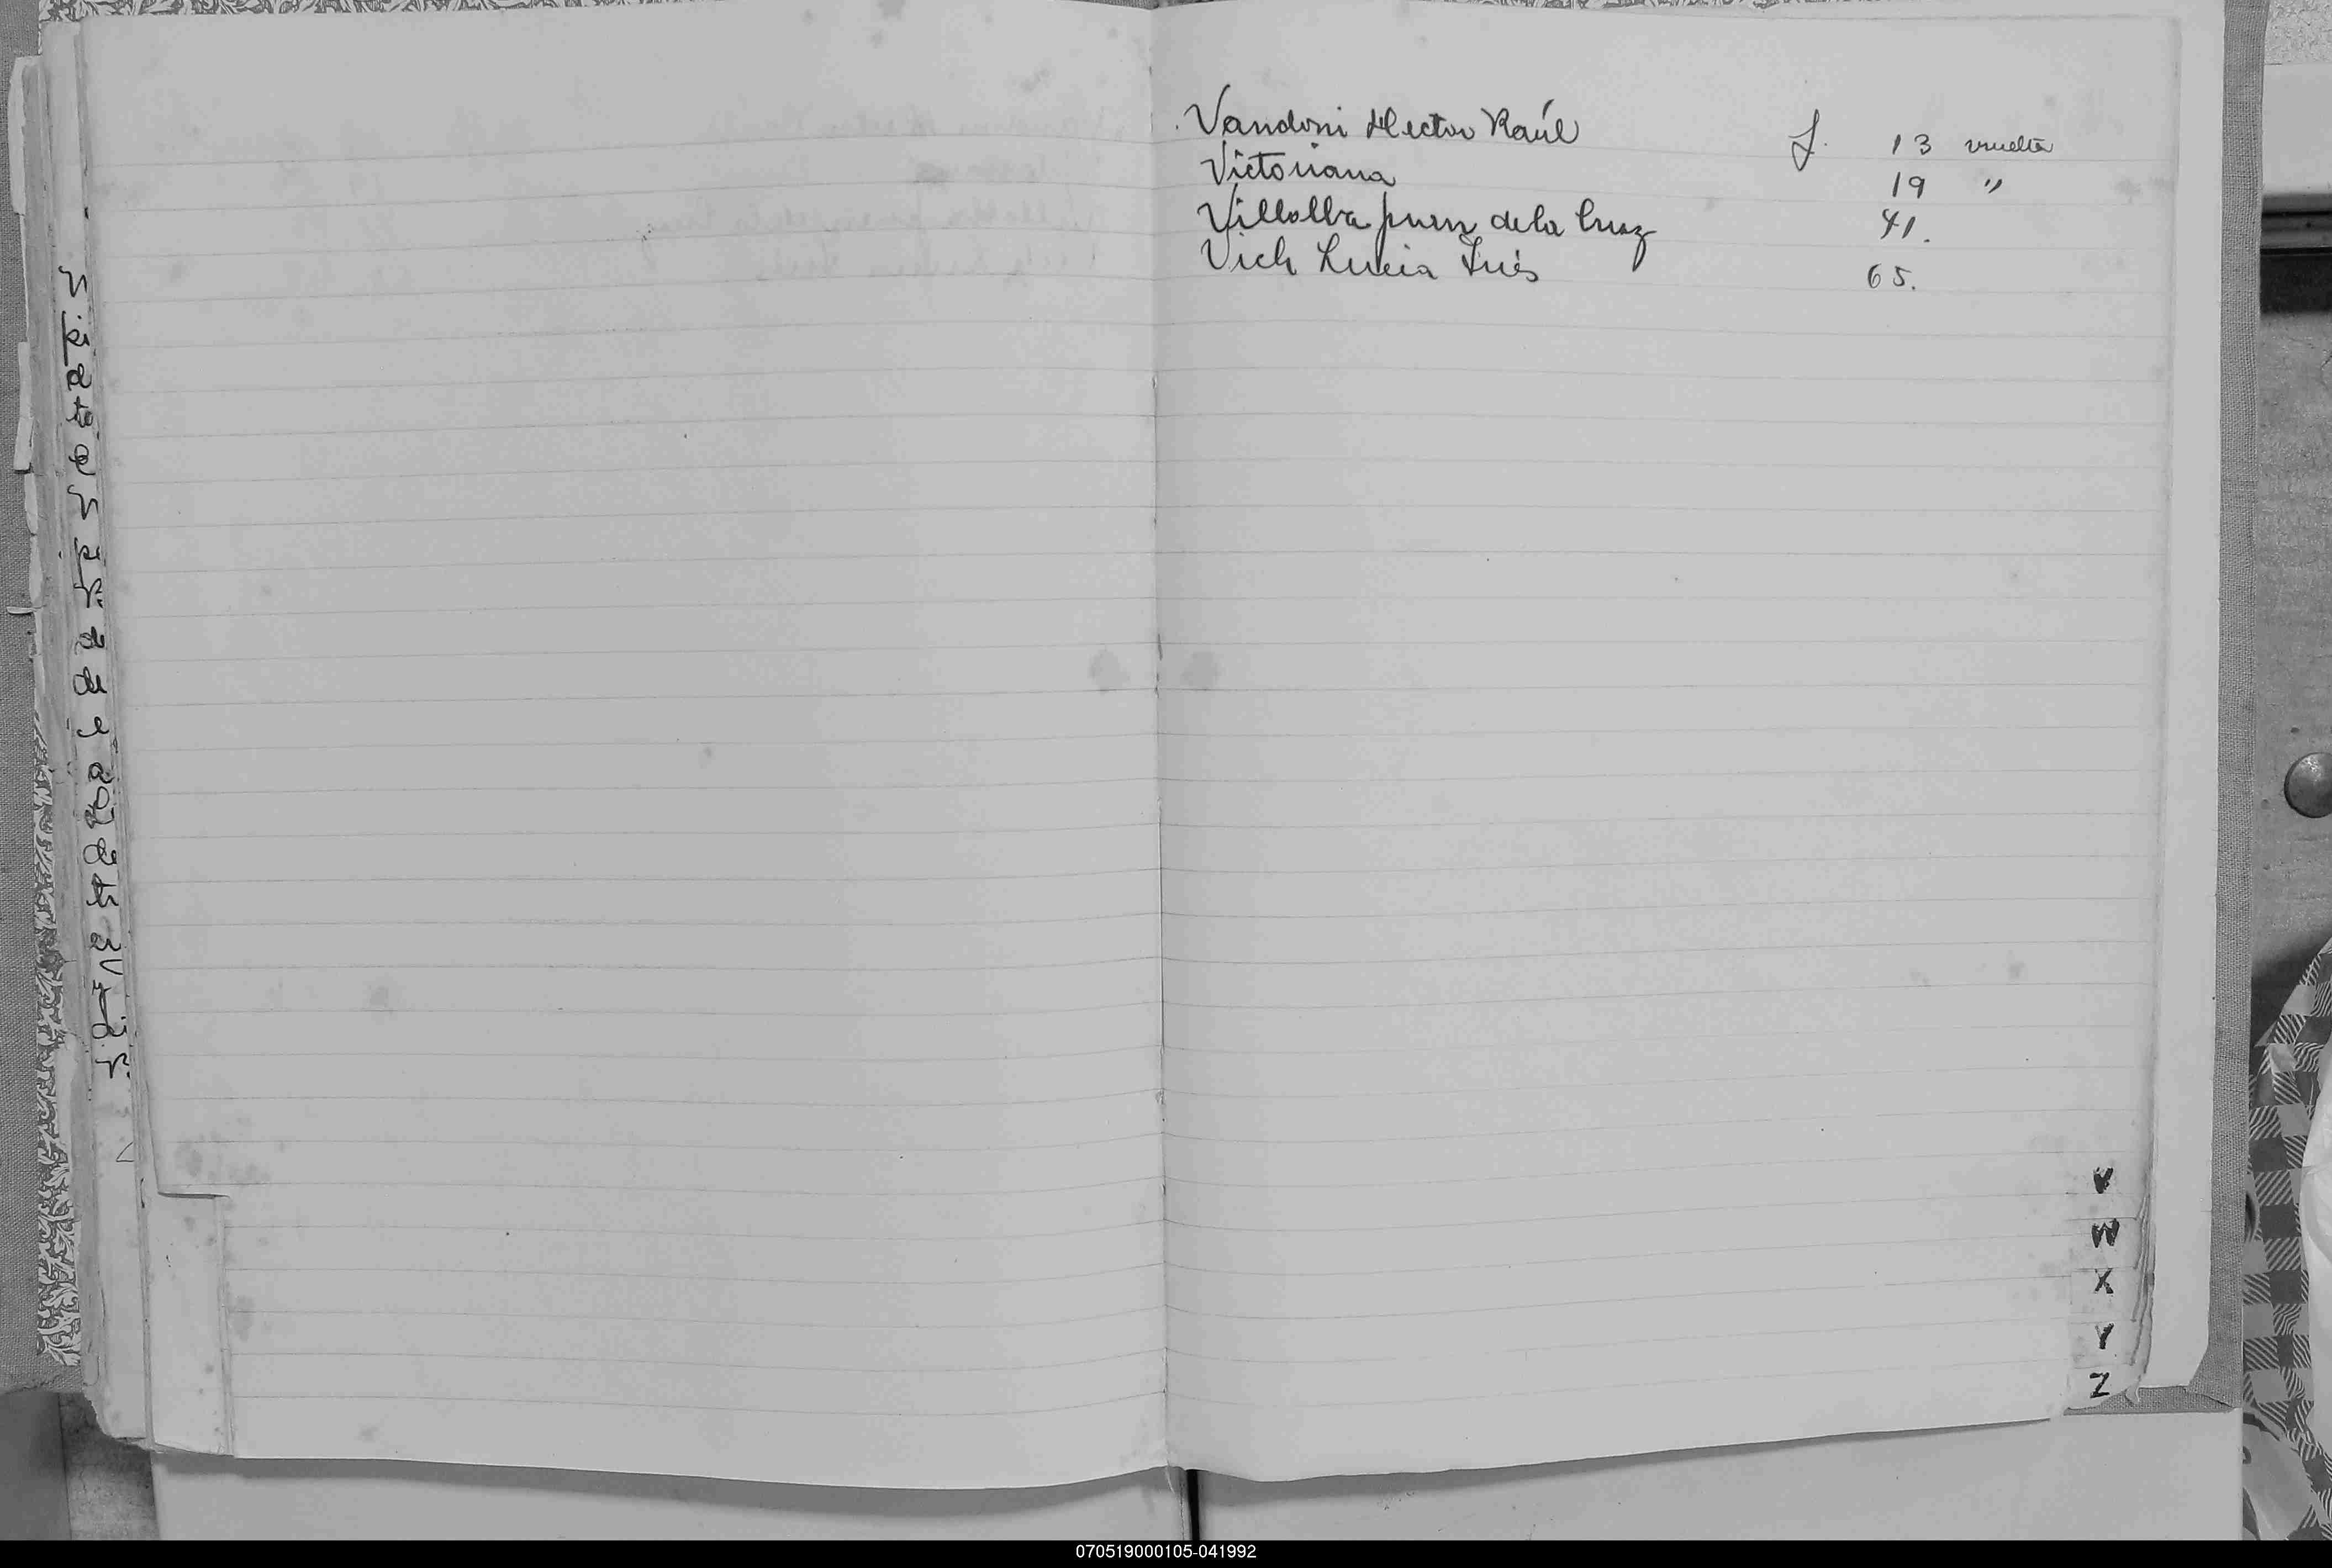 Vandoni Hector Raúl f. 13 vuelta
Victoriana 19 "
Villalba Juan de la Cruz 41.
Vich Lucia Inés 65.
V
W
X
Y
Z
070519000105-041992